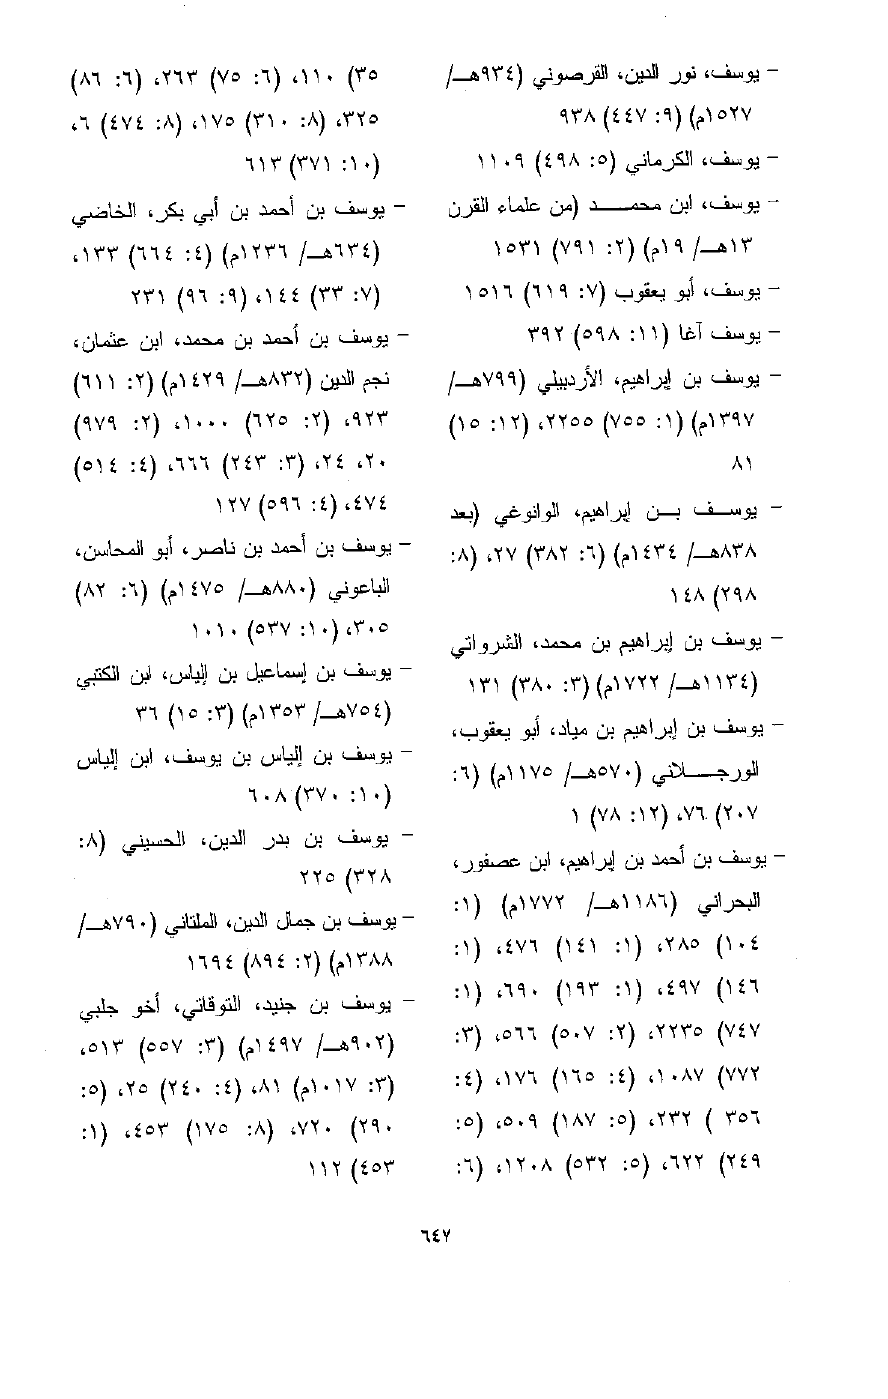 - يوسف، نور الدين، القرصوني (٩٣٤هـ/
١٥٢٧م) (٩: ٤٤٧) ٩٣٨
- يوسف، الكرماني (٥: ٤٩٨) ١١٠٩
- يوسف، ابن محمد (من علماء القرن
١٣هـ/ ١٩م) (٢: ٧٩١) ١٥٣١
- يوسف، أبو يعقوب (٧: ٦١٩) ١٥١٦
- يوسف آغا (١١: ٥٩٨) ٣٩٢
- يوسف بن إبراهيم، الأردبيلي (٧٩٩هـ/
١٣٩٧م) (١: ٧٥٥) ٢٢٥٥، (١٢: ١٥)
٨١
- يوسف بن إبراهيم، الوانوغي (بعد
٨٣٨هـ/ ١٤٣٤م) (٦: ٣٨٢) ٢٧، (٨:
٢٩٨) ١٤٨
- يوسف بن إبراهيم بن محمد، الشرواني
(١١٣٤هـ/ ١٧٢٢م) (٣: ٣٨٠) ١٣١
- يوسف بن إبراهيم بن مياد، أبو يعقوب،
الورجلاني (٥٧٠هـ/ ١١٧٥م) (٦:
٢٠٧) ٧٦، (١٢: ٧٨) ١
- يوسف بن أحمد بن إبراهيم، ابن عصفور،
البحراني (١١٨٦هـ/ ١٧٧٢م) (١:
١٠٤) ٢٨٥، (١: ١٤١) ٤٧٦، (١:
١٤٦) ٤٩٧، (١: ١٩٣) ٦٩٠، (١:
٧٤٧) ٢٢٣٥، (٢: ٥٠٧) ٥٦٦، (٣:
٧٧٢) ١٠٨٧، (٤: ١٦٥) ١٧٦، (٤:
٣٥٦ ) ٢٣٢، (٥: ١٨٧) ٥٠٩، (٥:
٢٤٩) ٦٢٢، (٥: ٥٣٢) ١٢٠٨، (٦:
٣٥) ١١٠، (٦: ٧٥) ٢٦٣، (٦: ٨٦)
٣٢٥، (٨: ٣١٠) ١٧٥، (٨: ٤٧٤) ٦،
(١٠: ٣٧١) ٦١٣
- يوسف بن أحمد بن أبي بكر، الخاضي
(٦٣٤هـ/ ١٢٣٦م) (٤: ٦٦٤) ١٣٣،
(٧: ٣٣) ١٤٤، (٩: ٩٦) ٢٣١
- يوسف بن أحمد بن محمد، ابن عثمان،
نجم الدين (٨٣٢هـ/ ١٤٢٩م) (٢: ٦١١)
٩٢٣، (٢: ٦٢٥) ١٠٠٠، (٢: ٩٧٩)
٢٠، ٢٤، (٣: ٢٤٣) ٦٦٦، (٤: ٥١٤)
٤٧٤، (٤: ٥٩٦) ١٢٧
- يوسف بن أحمد بن ناصر، أبو المحاسن،
الباعوني (٨٨٠هـ/ ١٤٧٥م) (٦: ٨٢)
٣٠٥، (١٠: ٥٣٧) ١٠١٠
- يوسف بن إسماعيل بن إلياس، ابن الكتبي
(٧٥٤هـ/ ١٣٥٣م) (٣: ١٥) ٣٦
- يوسف بن إلياس بن يوسف، ابن إلياس
(١٠: ٣٧٠) ٦٠٨
- يوسف بن بدر الدين، الحسيني (٨:
٣٢٨) ٢٢٥
- يوسف بن جمال الدين، الملتاني (٧٩٠هـ/
١٣٨٨م) (٢: ٨٩٤) ١٦٩٤
- يوسف بن جنيد، التوقاتي، أخو جلبي
(٩٠٢هـ/ ١٤٩٧م) (٣: ٥٥٧) ٥١٣،
(٣: ١٠١٧م) ٨١، (٤: ٢٤٠) ٢٥، (٥:
٢٩٠) ٧٢٠، (٨: ١٧٥) ٤٥٣، (١:
٤٥٣) ١١٢
٦٤٧